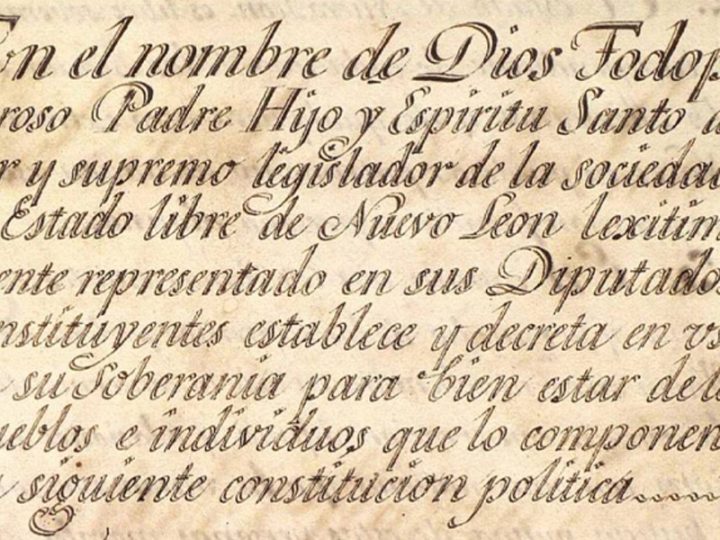 En el nombre de Dios Todop
roso Padre Hijo y Espiritu Santo a
r y supremo legislador de la sociedad
Estado libre de Nuevo Leon lexitim
ente representado en sus Diputado
nstituyentes establece y decreta en vs
su Soberania para bien estar de l
ueblos e individuos que lo componen
siguiente constitucion politica......